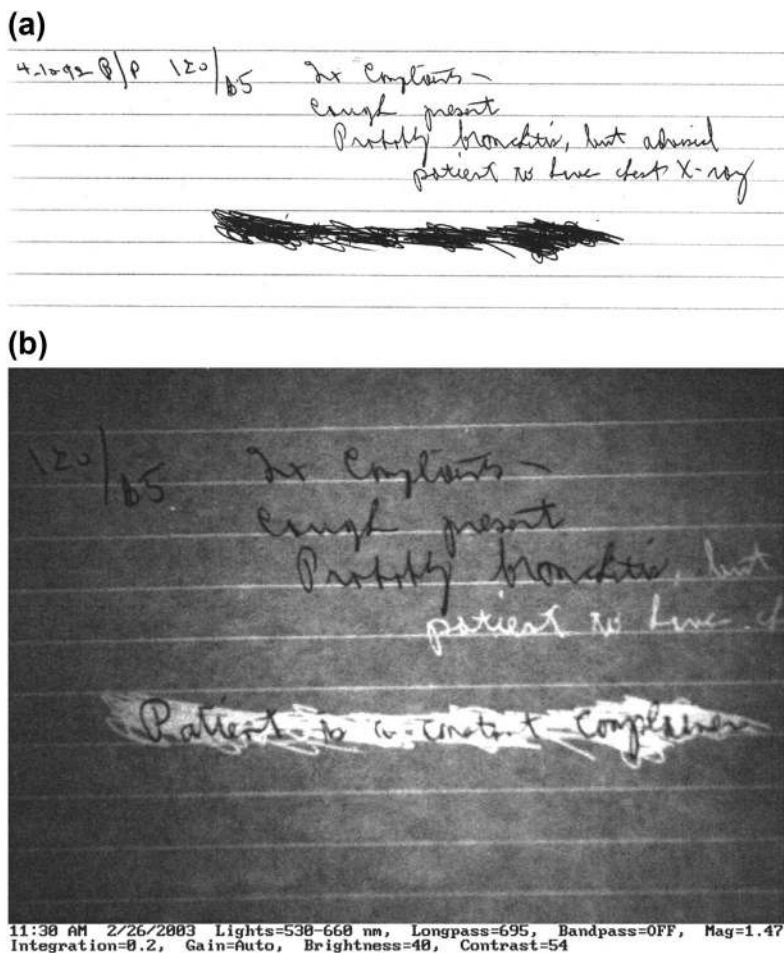 (a)
4-10-92 B/P 120/65 Dx Complaints -
cough present
Probably bronchitis, but advised
patient to have chest X-ray
(b)
120/65 Dx Complaints -
cough present
Probably bronchitis, but
patient to have
Patient is a constant complainer
11:30 AM 2/26/2003 Lights=530-660 nm, Longpass=695, Bandpass=OFF, Mag=1.47
Integration=0.2, Gain=Auto, Brightness=40, Contrast=54